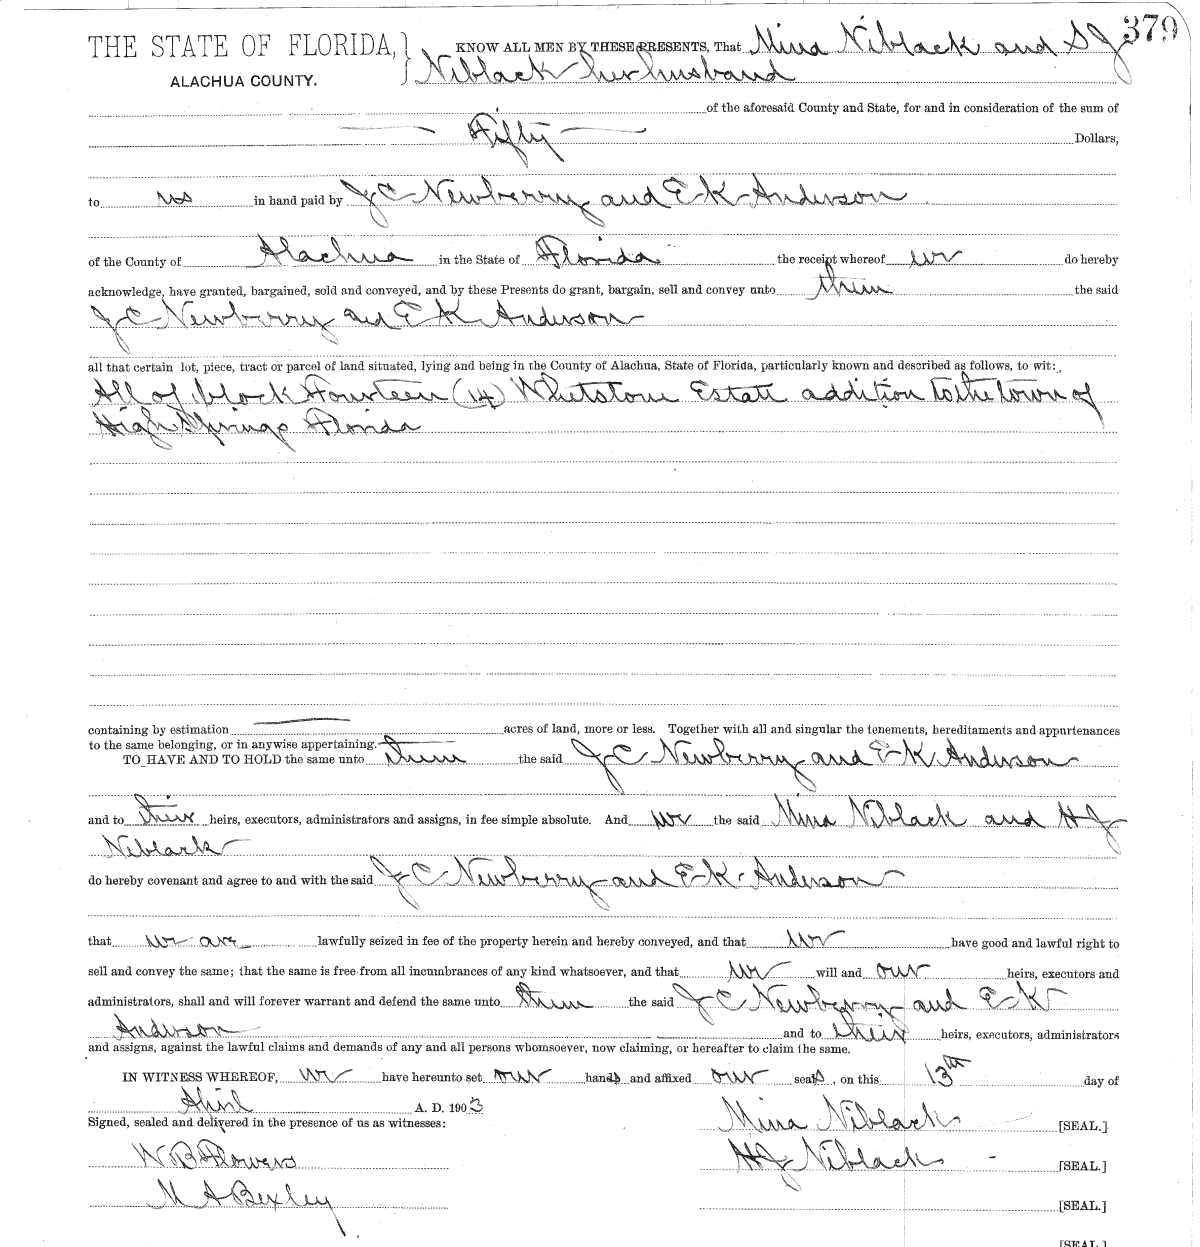 379
THE STATE OF FLORIDA, } KNOW ALL MEN BY THESE PRESENTS, That Mina Niblack and S J
ALACHUA COUNTY. Niblack her husband
of the aforesaid County and State, for and in consideration of the sum of
Fifty Dollars,
to us in hand paid by J C Newberry and E K Anderson
of the County of Alachua in the State of Florida the receipt whereof we do hereby
acknowledge, have granted, bargained, sold and conveyed, and by these Presents do grant, bargain, sell and convey unto them the said
J C Newberry and E K Anderson
all that certain lot, piece, tract or parcel of land situated, lying and being in the County of Alachua, State of Florida, particularly known and described as follows, to wit:
All of block Fourteen (14) Whetstone Estate addition to the town of
High Springs Florida
containing by estimation acres of land, more or less. Together with all and singular the tenements, hereditaments and appurtenances
to the same belonging, or in anywise appertaining.
TO HAVE AND TO HOLD the same unto them the said J C Newberry and E K Anderson
and to their heirs, executors, administrators and assigns, in fee simple absolute. And we the said Mina Niblack and H J
Niblack
do hereby covenant and agree to and with the said J C Newberry and E K Anderson
that we are lawfully seized in fee of the property herein and hereby conveyed, and that we have good and lawful right to
sell and convey the same; that the same is free from all incumbrances of any kind whatsoever, and that we will and our heirs, executors and
administrators, shall and will forever warrant and defend the same unto them the said J C Newberry and E K
Anderson and to their heirs, executors, administrators
and assigns, against the lawful claims and demands of any and all persons whomsoever, now claiming, or hereafter to claim the same.
IN WITNESS WHEREOF, we have hereunto set our hands and affixed our seals, on this 13th day of
April A. D. 1903
Signed, sealed and delivered in the presence of us as witnesses:
Mina Niblack [SEAL.]
W B Flowers
H J Niblack [SEAL.]
M A Bexley
[SEAL.]
[SEAL.]